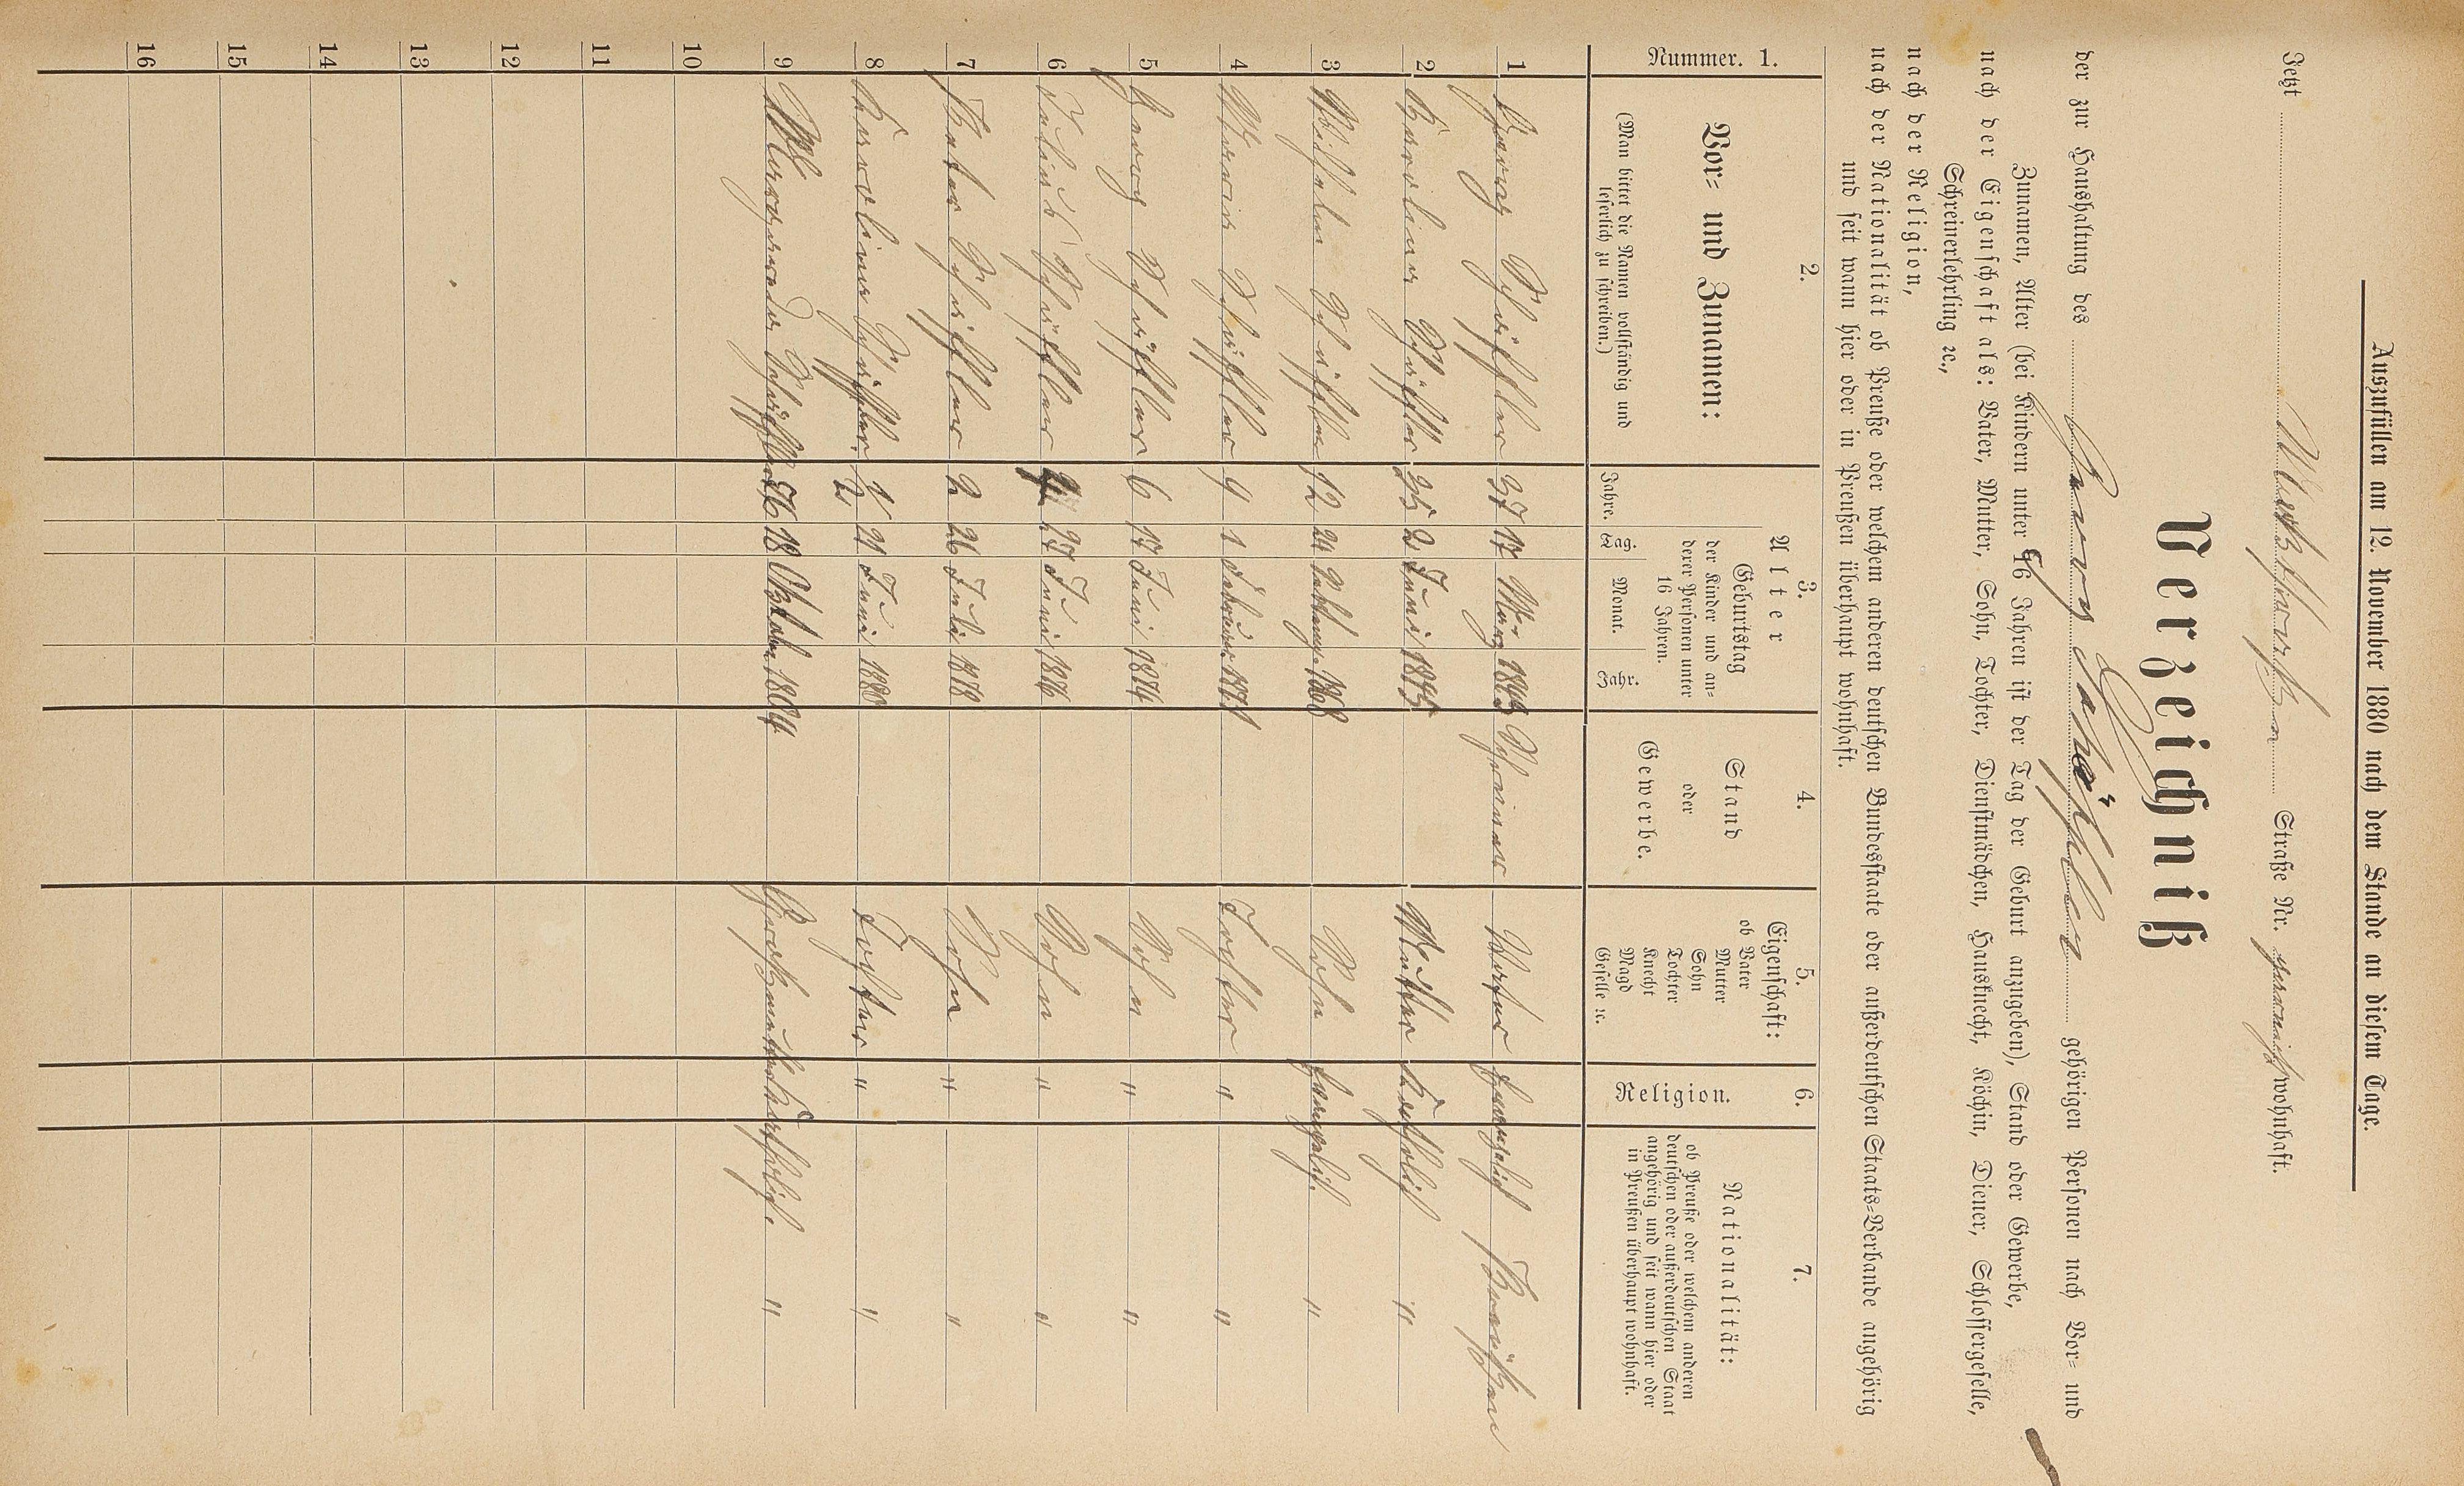 Auszufüllen am 12. November 1880 nach dem Stande an diesem Tage.
Jetzt Straße Nr. wohnhaft.
Verzeichniß
der zur Haushaltung des Georg Schäffler gehörigen Personen nach Vor- und
Zunamen, Alter (bei Kindern unter 16 Jahren ist der Tag der Geburt anzugeben), Stand oder Gewerbe,
nach der Eigenschaft als: Vater, Mutter, Sohn, Tochter, Dienstmädchen, Hausknecht, Köchin, Diener, Schlossergeselle,
Schreinerlehrling ꝛc.,
nach der Religion,
nach der Nationalität ob Preuße oder welchem anderen deutschen Bundesstaate oder außerdeutschen Staats-Verbande angehörig
und seit wann hier oder in Preußen überhaupt wohnhaft.
Nummer. 1.
2.
Vor- und Zunamen:
(Man bittet die Namen vollständig und
leserlich zu schreiben.)
3.
Alter:
Jahre.
Geburtstag
der Kinder und an-
derer Personen unter
16 Jahren.
Tag. Monat. Jahr.
4.
Stand
oder
Gewerbe.
5.
Eigenschaft:
ob Vater
Mutter
Sohn
Tochter
Knecht
Magd
Geselle ꝛc.
6.
Religion.
7.
Nationalität:
ob Preuße oder welchem anderen
deutschen oder außerdeutschen Staat
angehörig und seit wann hier oder
in Preußen überhaupt wohnhaft.
1 Georg Schäffler 37 17 März 1843 Schreiner Vater Evangelisch Preußen
2 Karoline Schäffler 35 2 Juni 1845 Mutter Katholisch "
3 Wilhelm Schäffler 12 24 1868 Sohn Evangelisch. "
4 Schäffler 9 1 Februar 1871 Tochter " "
5 Georg Schäffler 6 17 Juni 1874 Sohn " "
6 Julius Schäffler 4 27 Juni 1876 Sohn " "
7 Peter Schäffler 2 26 Juli 1878 Sohn " "
8 Karoline Schäffler 1/2 21 Juni 1880 Tochter " "
9 Schäffler 76 18 Oktober 1804 Großmutter Katholisch. "
10
11
12
13
14
15
16